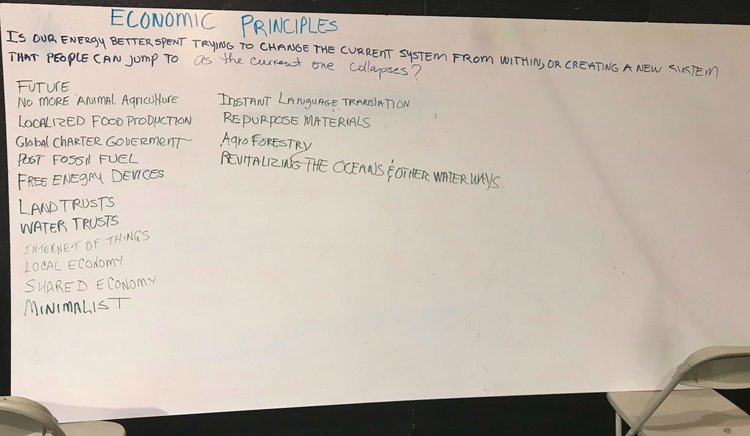 ECONOMIC PRINCIPLES
IS OUR ENERGY BETTER SPENT TRYING TO CHANGE THE CURRENT SYSTEM FROM WITHIN, OR CREATING A NEW SYSTEM
THAT PEOPLE CAN JUMP TO as the current one collapses?
FUTURE
NO MORE ANIMAL AGRICULTURE
LOCALIZED FOOD PRODUCTION
Global CHARTER GOVERMENT
POST FOSSIL FUEL
FREE ENEGRY DEVICES
LAND TRUSTS
WATER TRUSTS
INTERNET OF THINGS
LOCAL ECONOMY
SHARED ECONOMY
MINIMALIST
INSTANT LANGUAGE TRANSLATION
REPURPOSE MATERIALS
AGRO FORESTRY
REVITALIZING THE OCEANS & OTHER WATER WAYS